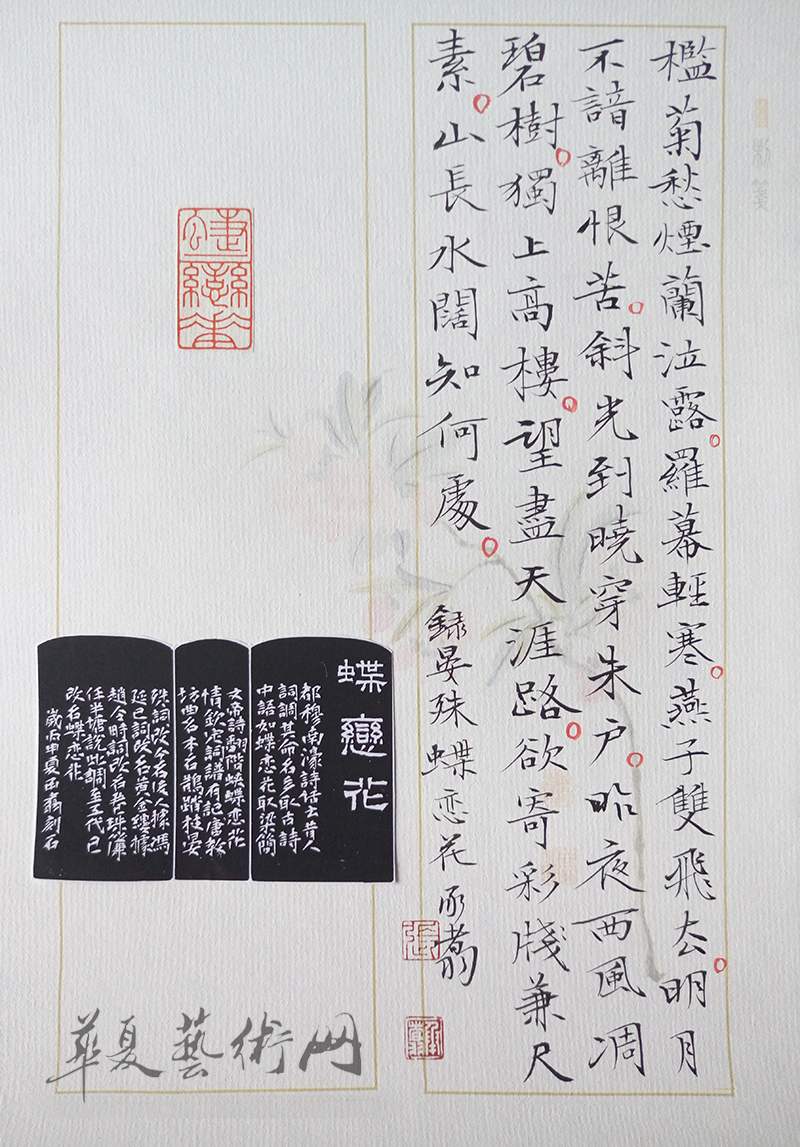 檻菊愁煙蘭泣露羅幕輕寒燕子雙飛去明月
不諳離恨苦斜光到曉穿朱户昨夜西風凋
碧樹獨上高樓望盡天涯路欲寄彩牋兼尺
素山長水闊知何處
錄晏殊蝶恋花
蝶戀花
蝶戀花
都穆南濠詩話云昔人
詞調其命名多取古詩
中語如蝶恋花取梁簡
文帝詩翻階蛱蝶恋花
情欽定詞譜有記唐教
坊曲名本名鹊踏枝晏
殊詞改今名後人據馮
延巳詞改名黄金縷據
趙令畤詞改名卷珠簾
任半塘說此調至五代已
改名蝶恋花
華夏藝術网